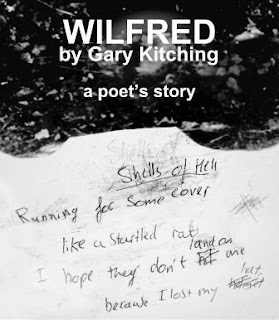 WILFRED
by Gary Kitching
a poet's story
Shells of
Shells of Hell
Running for some cover
like a startled rat
I hope they don't land on me
because I lost my hat.